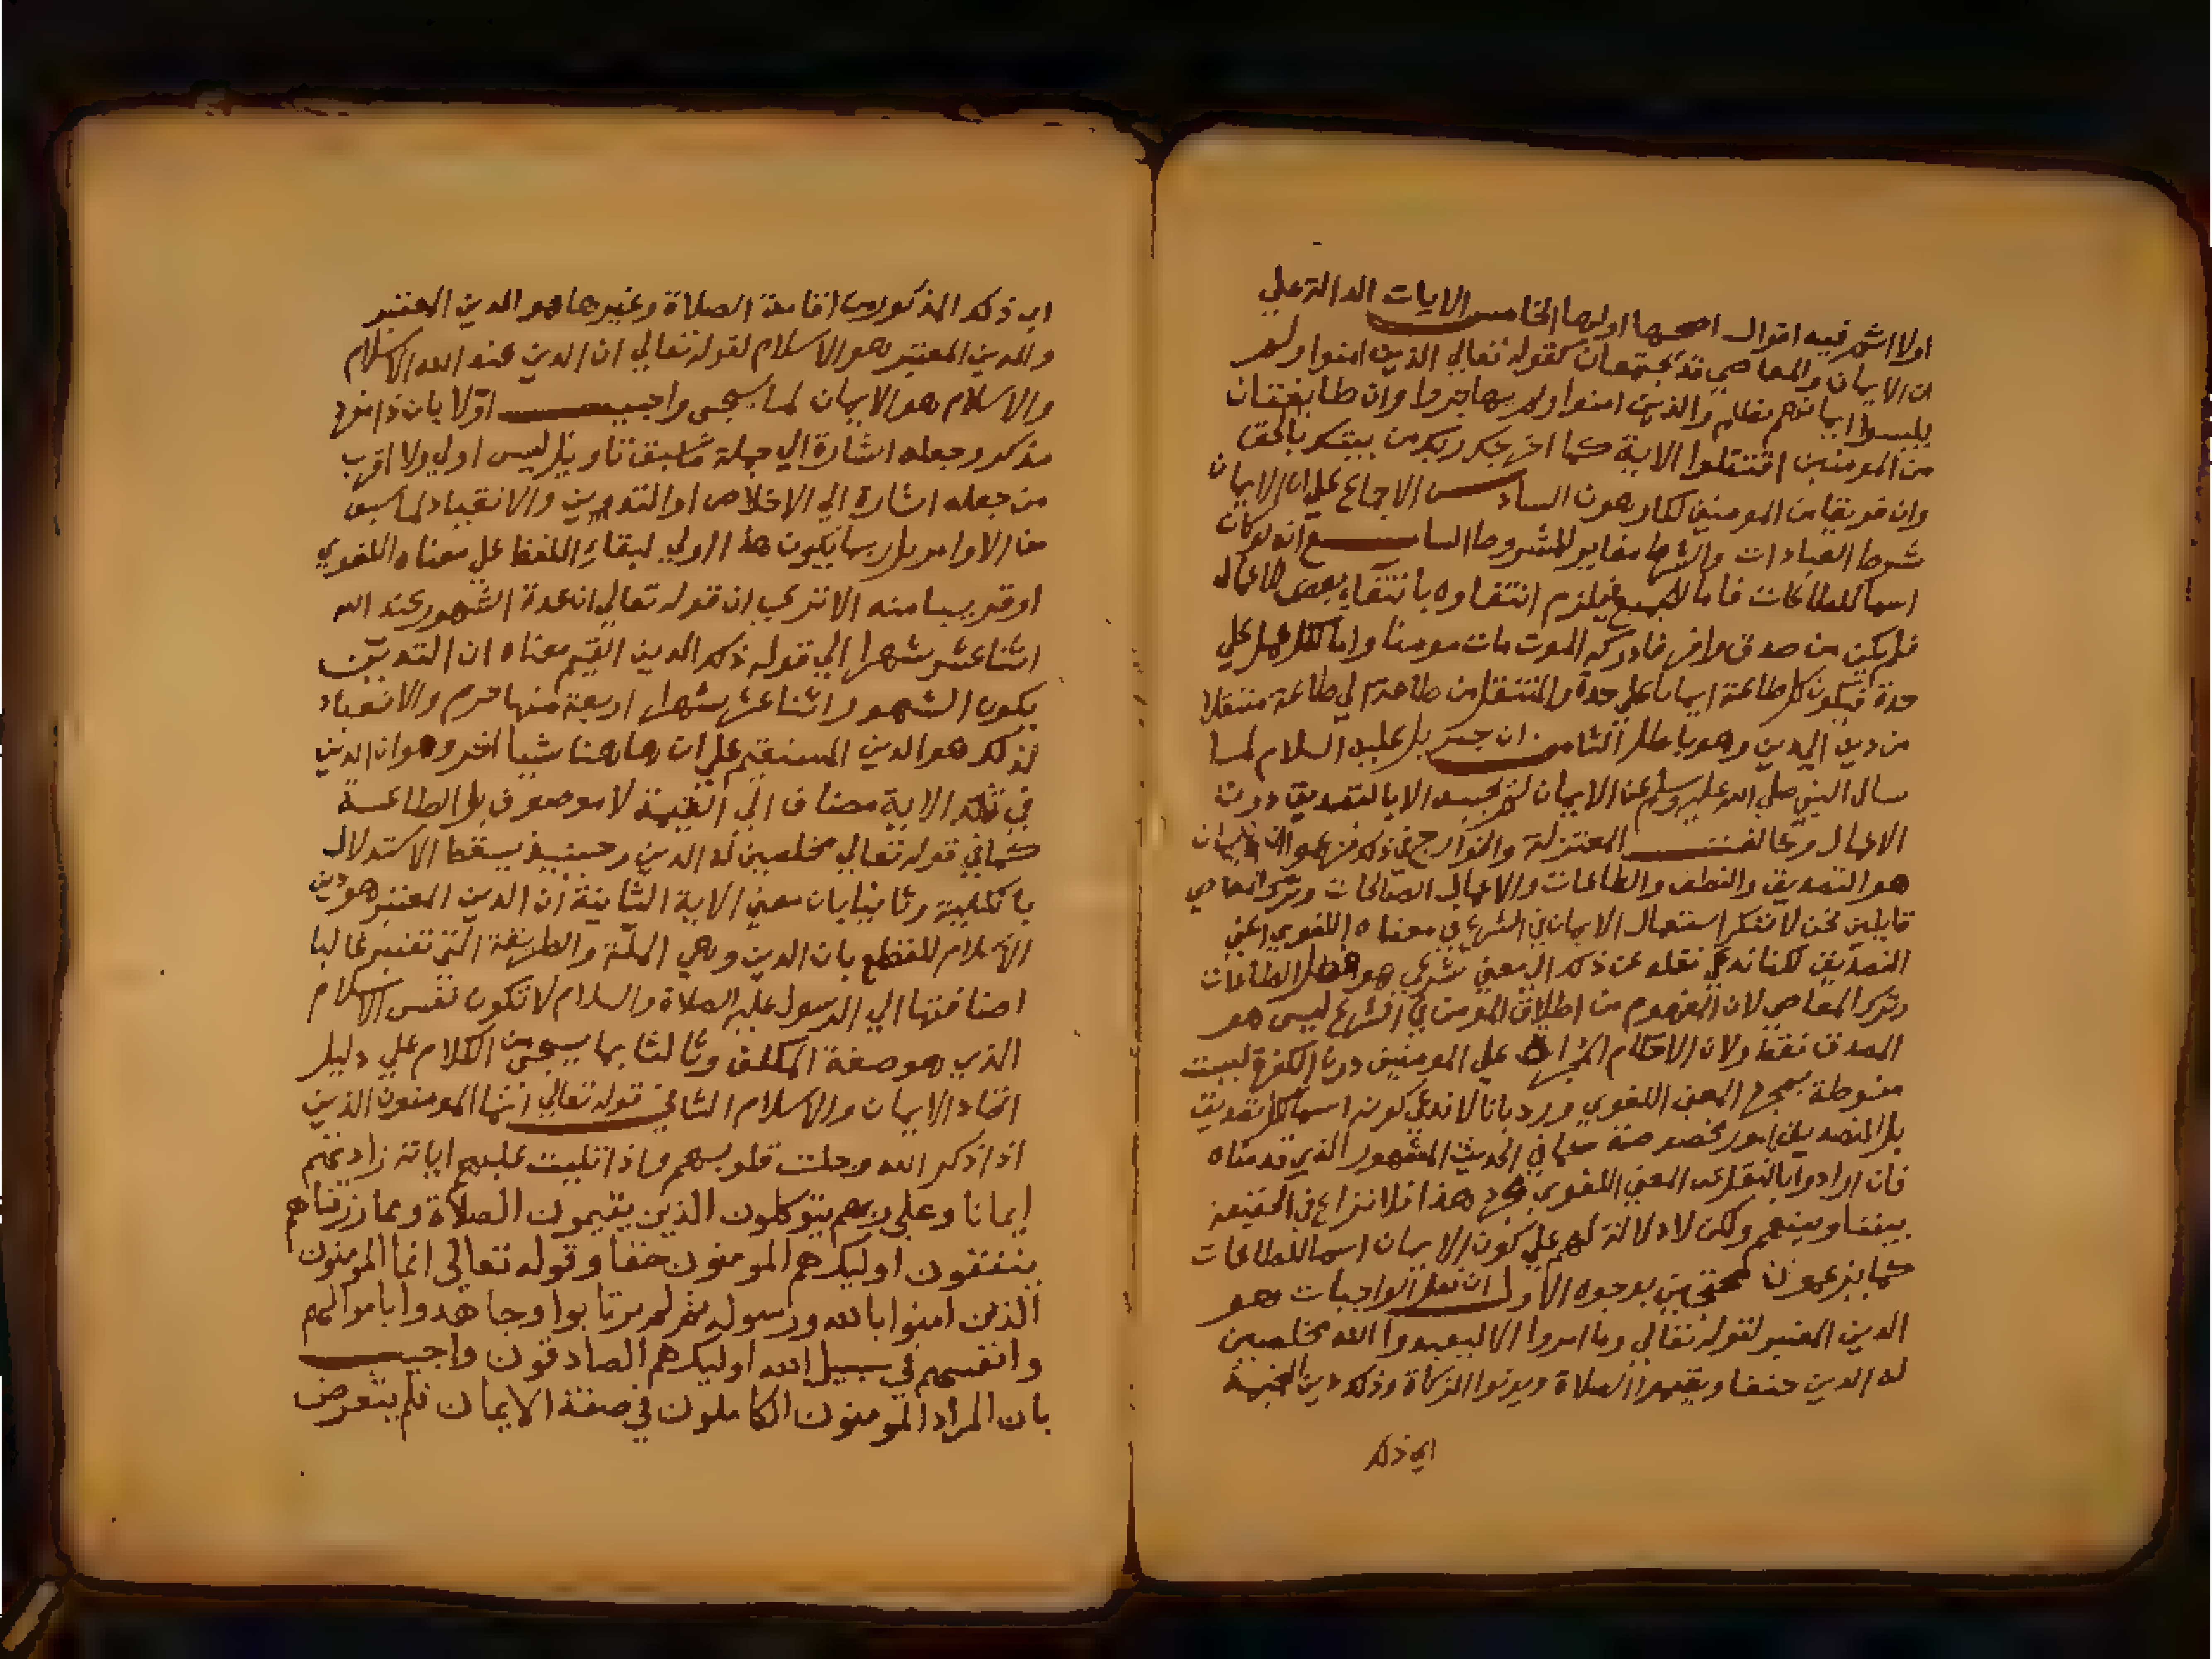 اولا اشهر فيه اقوال اصحها اولها الخامس الايات الدالة علي
ان الايمان والمعاصي قد يجتمعان كقوله تعالي الذين امنوا ولم
يلبسوا ايمانهم بظلم والذين امنوا ولم يهاجروا وان طايفتان
من المومنين اقتتلوا الاية كما اخرجك ربك من بيتك بالحق
وان فريقا من المومنين لكارهون السادس الاجماع علي ان الايمان
شرط العبادات والشرط مغاير للمشروط السابع انه لو كان
اسما للطاعات فاما للجميع فيلزم انتفاوه بانتفاء بعض الاعمال
فلم يكن من صدق واقر فادركه الموت مات مومنا واما لكل عمل علي
حدة فيكون كل طاعة ايمانا علي حدة والمنتقل من طاعة الي طاعة منتقلا
من دين الي دين وهو باطل الثامن ان جبريل عليه السلام لما
سال النبي صلي الله عليه وسلم عن الايمان لم يجبه الا بالتصديق دون
الاعمال وخالفت المعتزلة والخوارج في ذلك فزعموا ان الايمان
هو التصديق والنطق والطاعات والاعمال الصالحات وترك المعاصي
قايلين نحن لا ننكر استعمال الايمان في الشرع في معناه اللغوي اعني
التصديق لكنا ندعي نقله عن ذلك الي معني شرعي هو فعل الطاعات
وترك المعاصي لان المفهوم من اطلاق المومن في الشرع ليس هو
المصدق فقط ولان الاحكام المجراة علي المومنين دون الكفرة ليست
منوطة بمجرد المعني اللغوي ورد بانا لا ندعي كونه اسما لكل تصديق
بل التصديق بامور مخصوصة كما في الحديث المشهور الذي قدمناه
فان ارادوا بالنقل عن المعني اللغوي مجرد هذا فلا نزاع في الحقيقة
بيننا وبينهم ولكن لا دلالة لهم علي كون الايمان اسما للطاعات
كما يزعمون محتجين بوجوه الاول ان فعل الواجبات هو
الدين المعتبر لقوله تعالي وما امروا الا ليعبدوا الله مخلصين
له الدين حنفا ويقيموا الصلاة ويوتوا الزكاة وذلك دين القيمة
اي ذلك
اي ذلك المذكور من اقامة الصلاة وغيرها هو الدين المعتبر
والدين المعتبر هو الاسلام لقوله تعالي ان الدين عند الله الاسلام
والاسلام هو الايمان لما سيجي واجيب اولا بان ذا مفرد
مذكر وجعله اشارة الي جملة ما سبق تاويل ليس اولي ولا اقرب
من جعله اشارة الي الاخلاص او التدين والانقياد لما سبق
من الاوامر بل ربما يكون هذا اولي لبقاء اللفظ علي معناه اللغوي
او قريبا منه الا تري ان قوله تعالي ان عدة الشهور عند الله
اثنا عشر شهرا الي قوله ذلك الدين القيم معناه ان التدين
بكون الشهور اثنا عشر شهرا اربعة منها حرم والانقياد
لذلك هو الدين المستقيم علي ان هاهنا شيا اخر وهو ان الدين
في تلك الاية مضاف الي القيمة لا موصوف بل الطاعة
كما في قوله تعالي مخلصين له الدين وحينيذ يسقط الاستدلال
بالكلية وثانيا بان معني الاية الثانية ان الدين المعتبر هو دين
الاسلام للقطع بان الدين وهي الملة والطريقة التي تعتبر غالبا
اضافتها الي الرسول عليه الصلاة والسلام لا تكون نفس الاسلام
الذي هو صفة المكلف وثالثا بما سيجي من الكلام علي دليل
اتحاد الايمان والاسلام الثاني قوله تعالي انما المومنون الذين
اذا ذكر الله وجلت قلوبهم واذا تليت عليهم اياته زادتهم
إيمانا وعلى ربهم يتوكلون الذين يقيمون الصلاة ومما رزقناهم
ينفقون اوليك هم المومنون حقا وقوله تعالى انما المومنون
الذين امنوا بالله ورسوله ثم لم يرتابوا وجاهدوا باموالهم
وانفسهم في سبيل الله اوليك هم الصادقون واجيب
بان المراد المومنون الكاملون في صفة الايمان فلم يتعرض